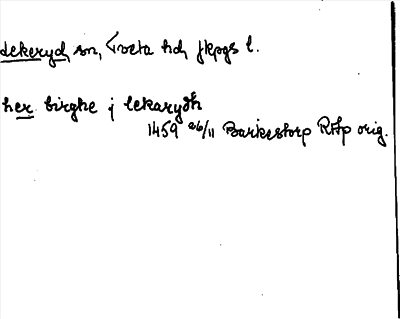 Lekeryd, sn, Tveta hd, Jkpgs l.
her birghe j lekarydh
1459 26/11 Barkestorp RAp orig.